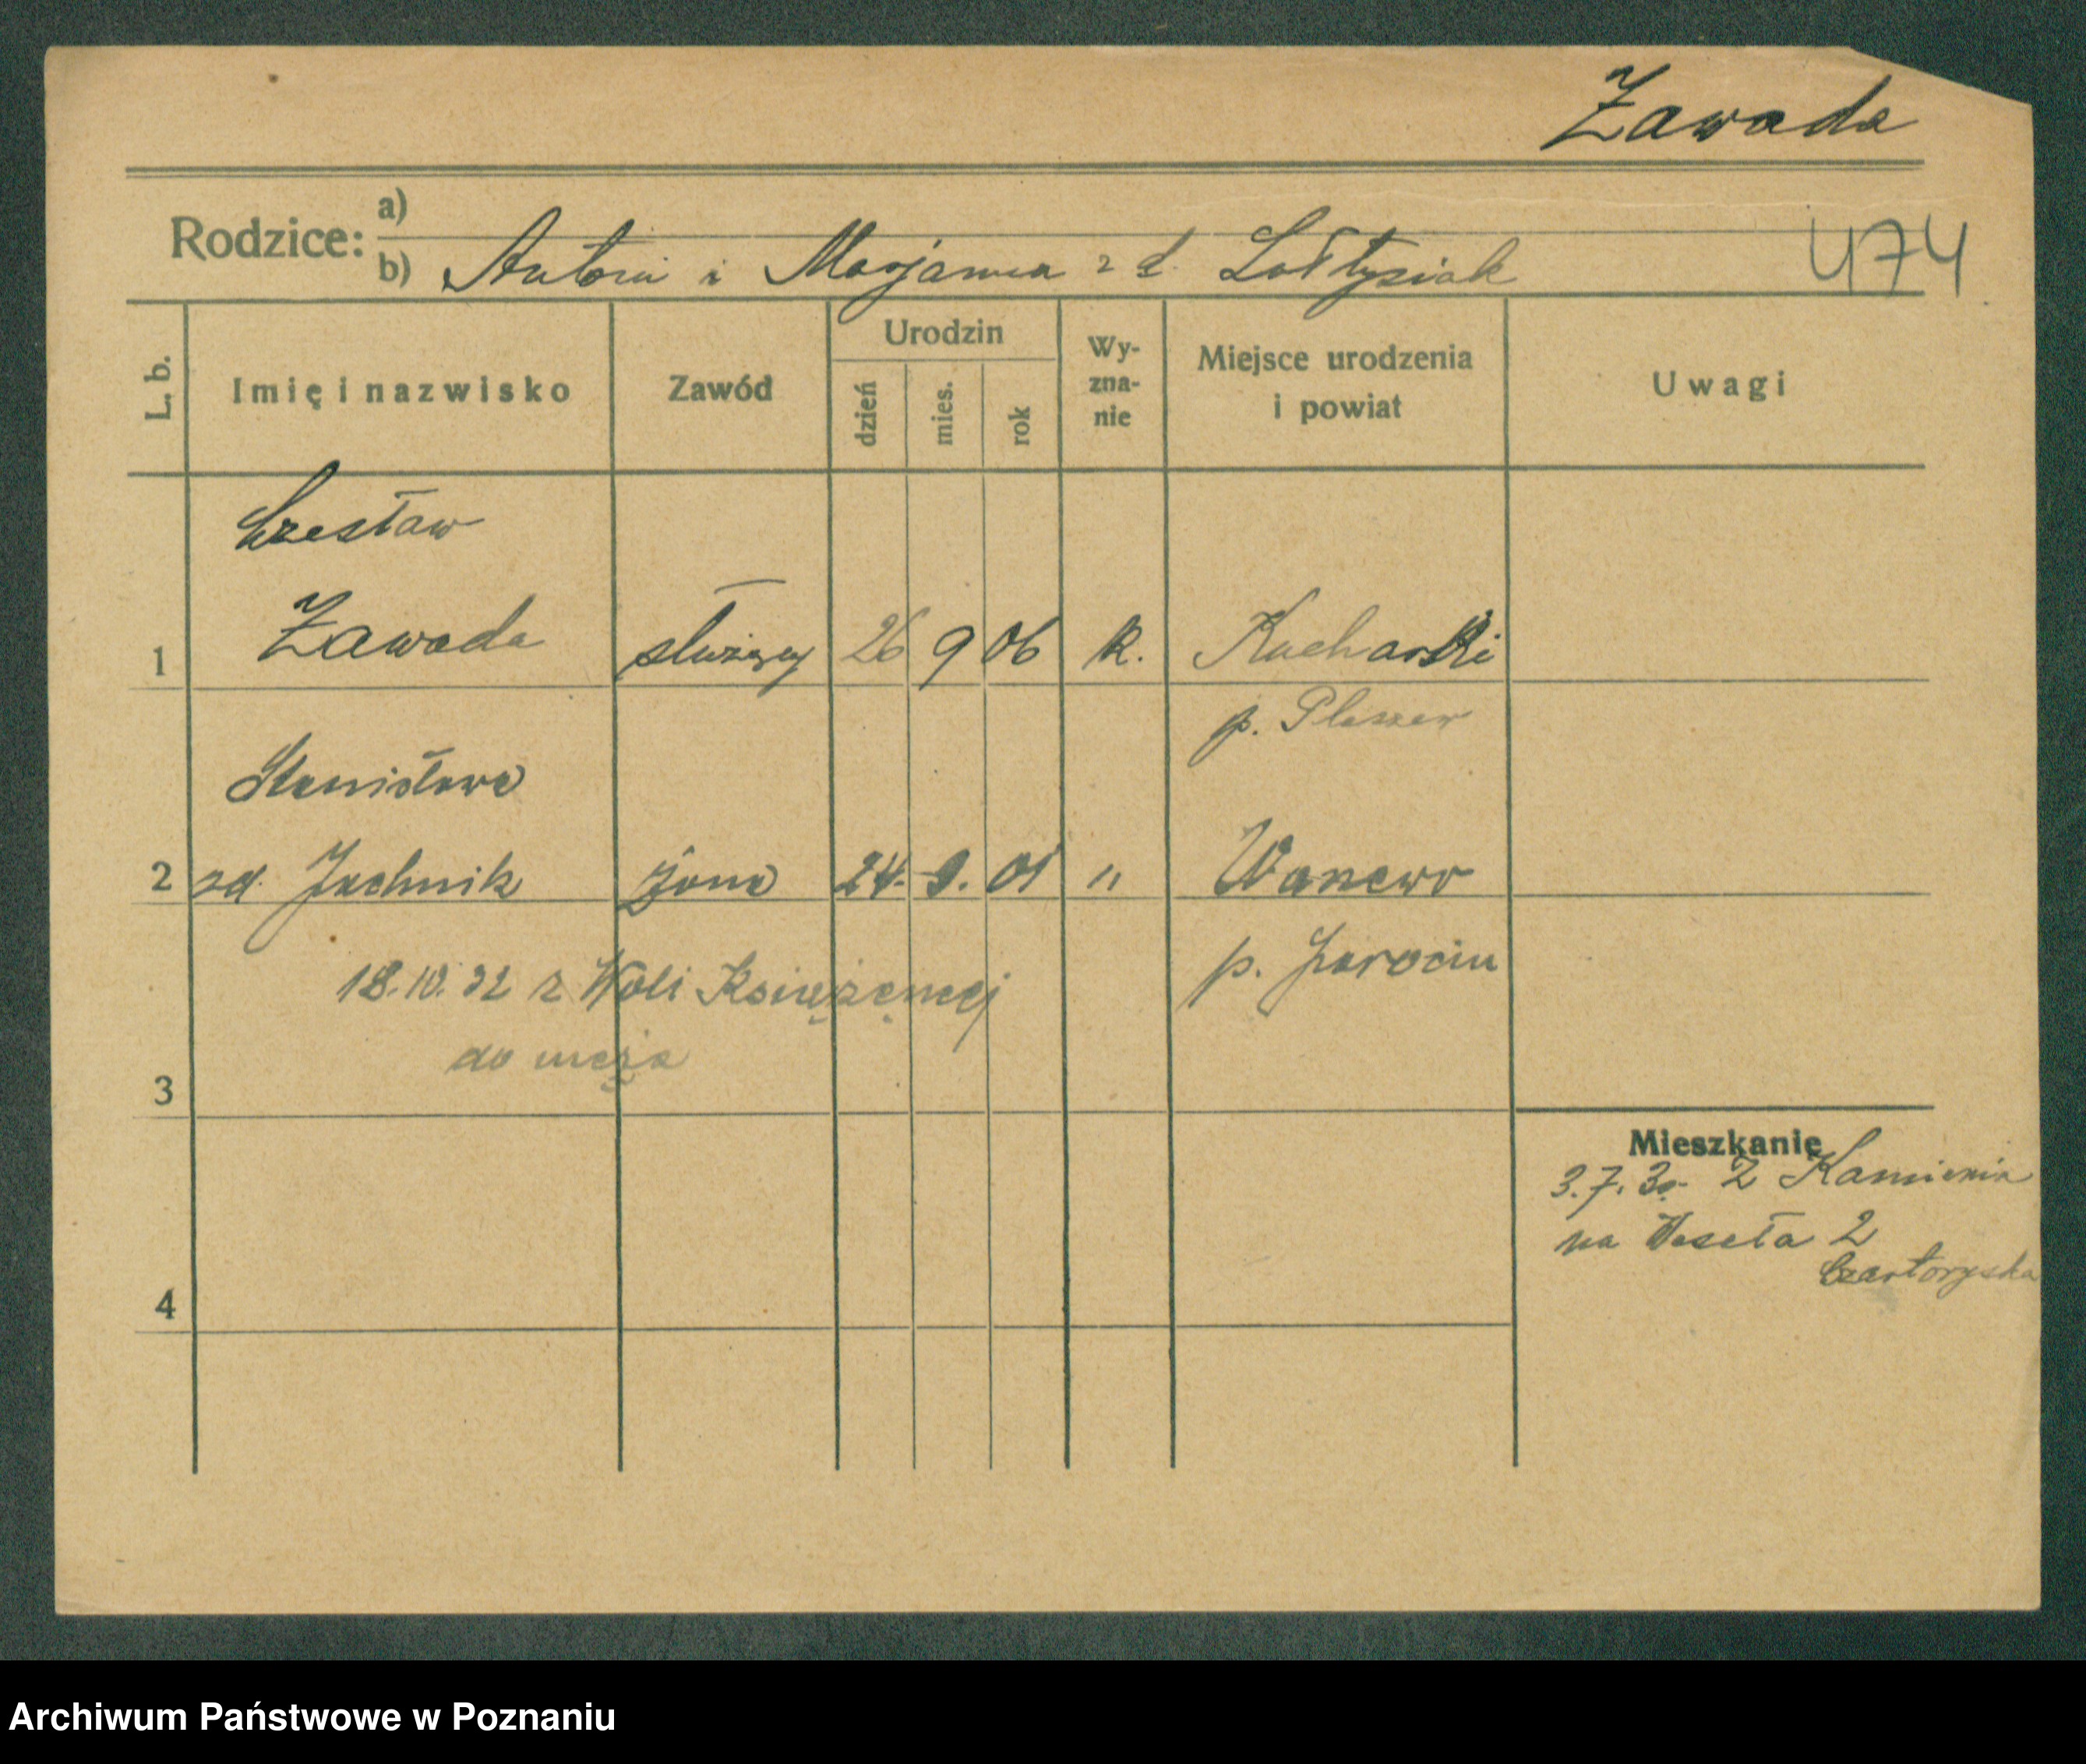 Zawada
Rodzice: a)
b) Antoni i Marjanna z d. Sołtysiak
474
L. b. Imię i nazwisko Zawód Urodzin dzień mies. rok Wy-zna-nie Miejsce urodzenia i powiat Uwagi
Czesław
1 Zawada służący 26 9 06 k. Kucharki
p. Pleszew
Stanisława
2 zd. Jachnik żona 24. 9. 01 "
p. Jarocin
18.10.32 z Woli Książęcej
do męża
3
Mieszkanie
3.7.30 z Kamienia
na Wesoła 2
Czartoryska
4
Archiwum Państwowe w Poznaniu